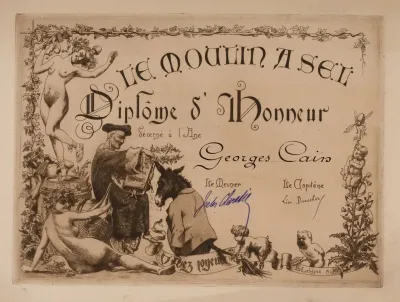 LE MOULIN A SEL
Diplôme d'Honneur
décerné à l'Ane
Georges Cain
Le Meunier
Le Capitaine